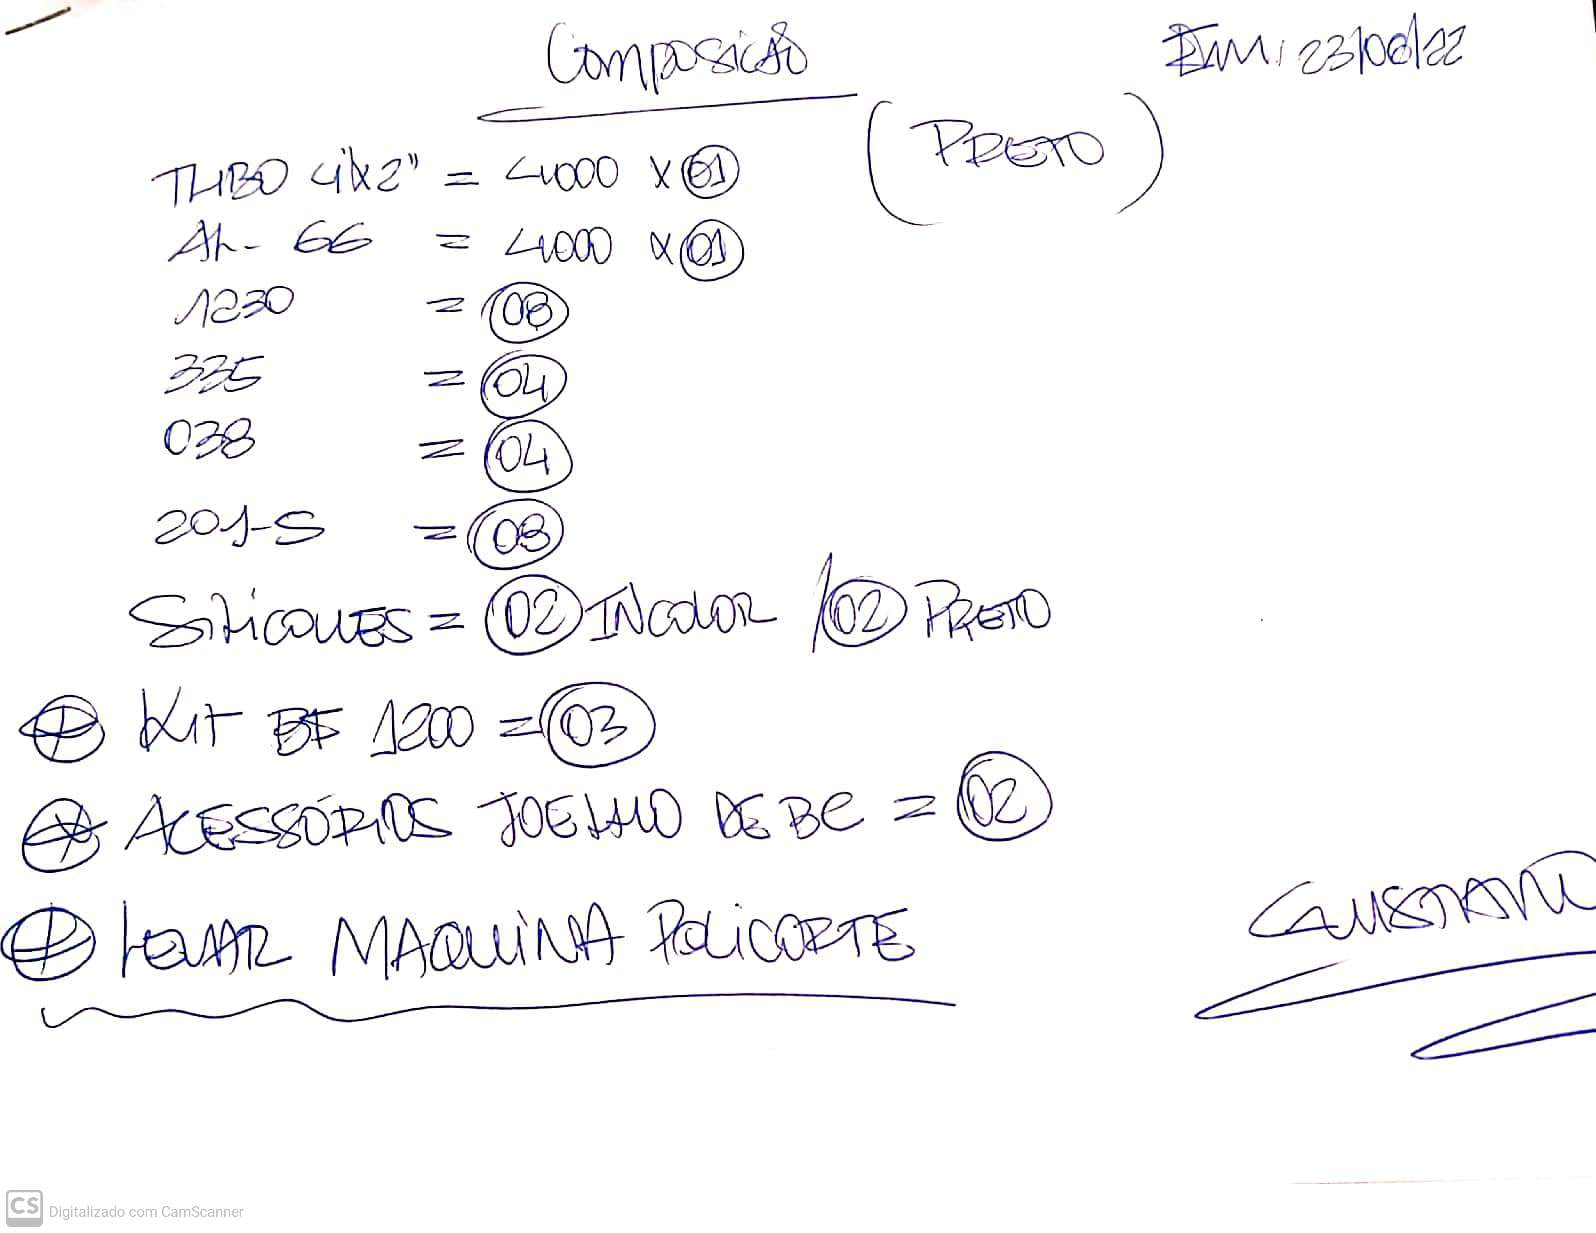 Composição
Em: 23/06/22
(PRETO)
TUBO 4"x2" = 4000 x 01
AL- 66 = 4000 x 01
1230 = 08
335 = 04
038 = 04
201-S = 08
SiliCONES = 02 INCOLOR / 02 PRETO
Kit BF 1200 = 03
ACESSÓRIOS JOELHO DE BC = 02
LEVAR MAQUiNA POLICORTE
GUSTAVO
CS Digitalizado com CamScanner